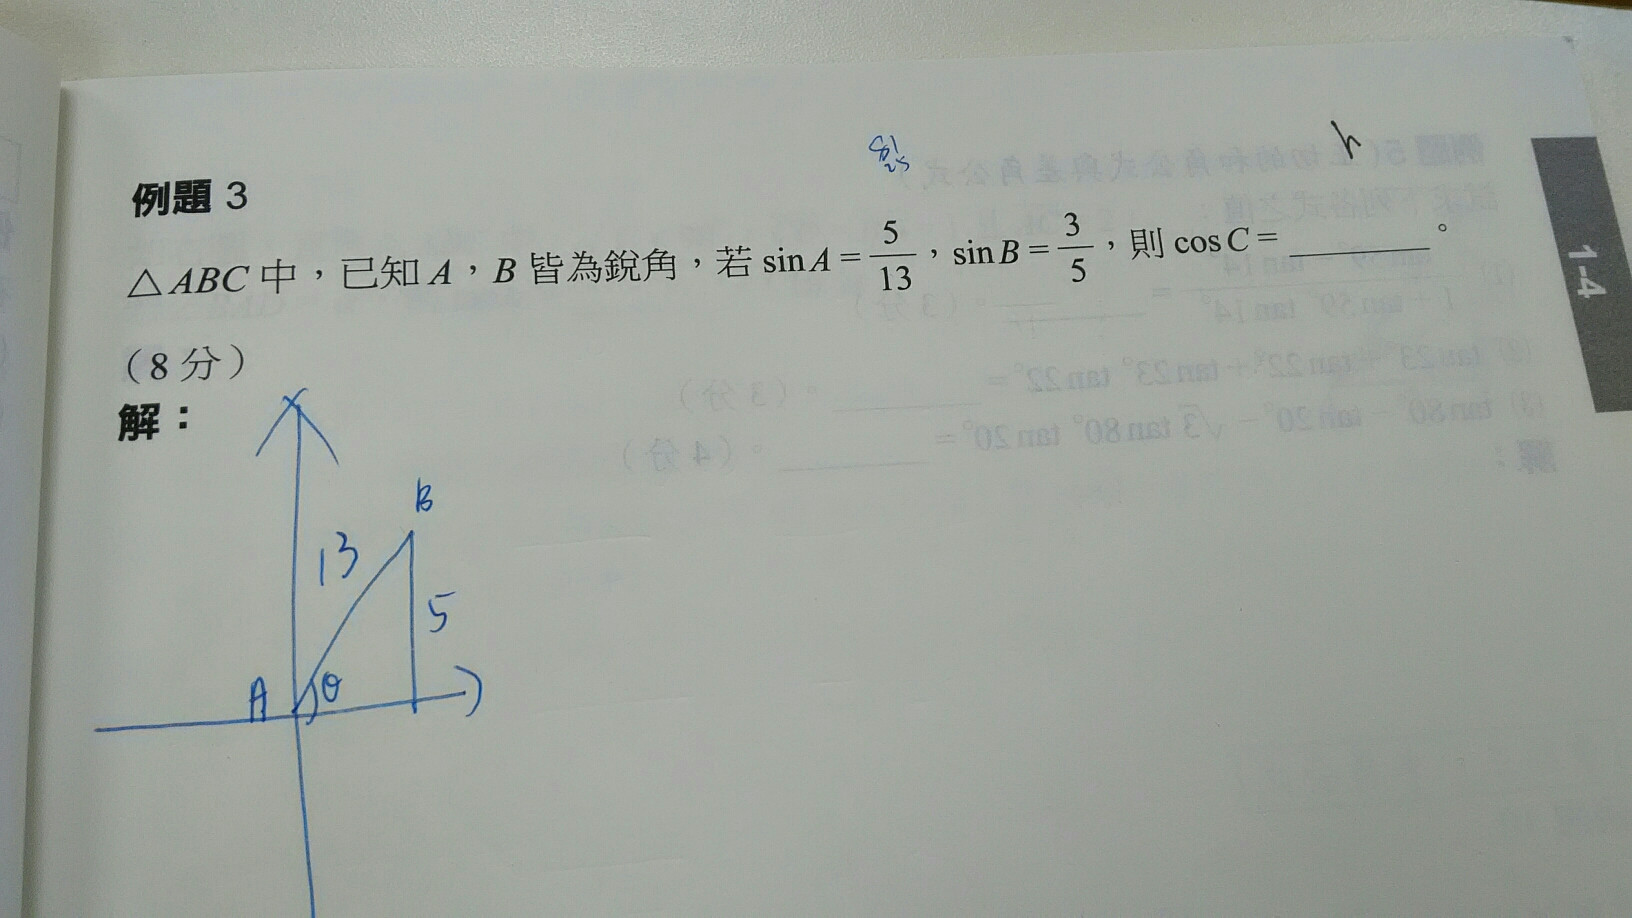 例題 3
△ABC 中，已知 A，B 皆為銳角，若 sin A = 5/13，sin B = 3/5，則 cos C = ________。
（8 分）
解：
B
13
5
A θ
1-4